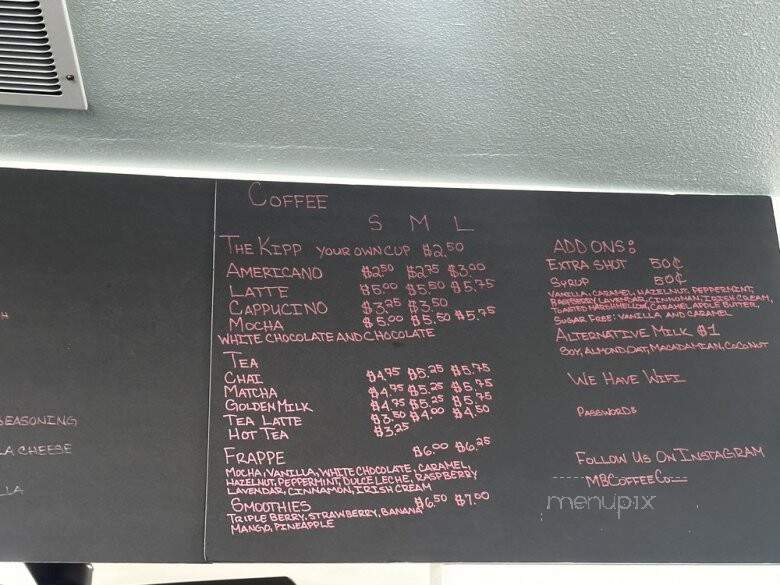 SEASONING
A CHEESE
LA
COFFEE
S M L
THE KIPP YOUR OWN CUP $2.50
AMERICANO $2.50 $2.75 $3.00
LATTE $5.00 $5.50 $5.75
CAPPUCINO $3.25 $3.50
MOCHA $5.00 $5.50 $5.75
WHITE CHOCOLATE AND CHOCOLATE
TEA
CHAI $4.75 $5.25 $5.75
MATCHA $4.75 $5.25 $5.75
GOLDEN MILK $4.75 $5.25 $5.75
TEA LATTE $3.50 $4.00 $4.50
HOT TEA $3.25
FRAPPE $6.00 $6.25
MOCHA, VANILLA, WHITE CHOCOLATE, CARAMEL,
HAZELNUT, PEPPERMINT, DULCE LECHE, RASPBERRY
LAVENDAR, CINNAMON, IRISH CREAM
SMOOTHIES $6.50 $7.00
TRIPLE BERRY, STRAWBERRY, BANANA
MANGO, PINEAPPLE
ADD ONS:
EXTRA SHOT 50¢
SYRUP 50¢
VANILLA, CARAMEL, HAZELNUT, PEPPERMINT,
RASPBERRY, LAVENDAR, CINNOMAN, IRISH CREAM,
TOASTED MARSHMELLOW, CARAMEL APPLE BUTTER,
SUGAR FREE: VANILLA AND CARAMEL
ALTERNATIVE MILK $1
SOY, ALMOND, OAT, MACADAMIAN, COCONUT
WE HAVE WIFI
PASSWORD:
FOLLOW US ON INSTAGRAM
MBCOFFEECO
menupix